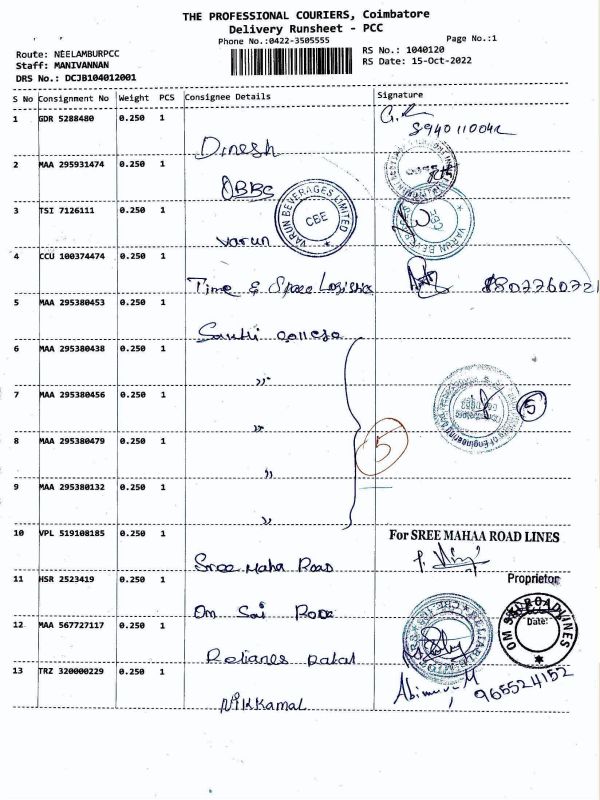 THE PROFESSIONAL COURIERS, Coimbatore
Delivery Runsheet - PCC
Phone No.:0422-3505555
Page No.:1
Route: NEELAMBURPCC
Staff: MANIVANNAN
DRS No.: DCJB104012001
RS No.: 1040120
RS Date: 15-Oct-2022
S No Consignment No Weight PCS Consignee Details Signature
1 GDR 5288480 0.250 1
Dinesh
2 MAA 295931474 0.250 1
OBBC
3 TSI 7126111 0.250 1
VARUN BEVERAGES LIMITED
CBE
Varun
4 CCU 100374474 0.250 1
Time & Space Logistics
5 MAA 295380453 0.250 1
6 MAA 295380438 0.250 1
"
7 MAA 295380456 0.250 1
"
5
5
8 MAA 295380479 0.250 1
"
9 MAA 295380132 0.250 1
"
10 VPL 519108185 0.250 1
For SREE MAHAA ROAD LINES
Sree Maha Road
Proprietor
11 HSR 2523419 0.250 1
Om Sai Rode
OM SAI ROADLINES
Date:
12 MAA 567727117 0.250 1
13 TRZ 320000229 0.250 1
965524152
Nikkamal